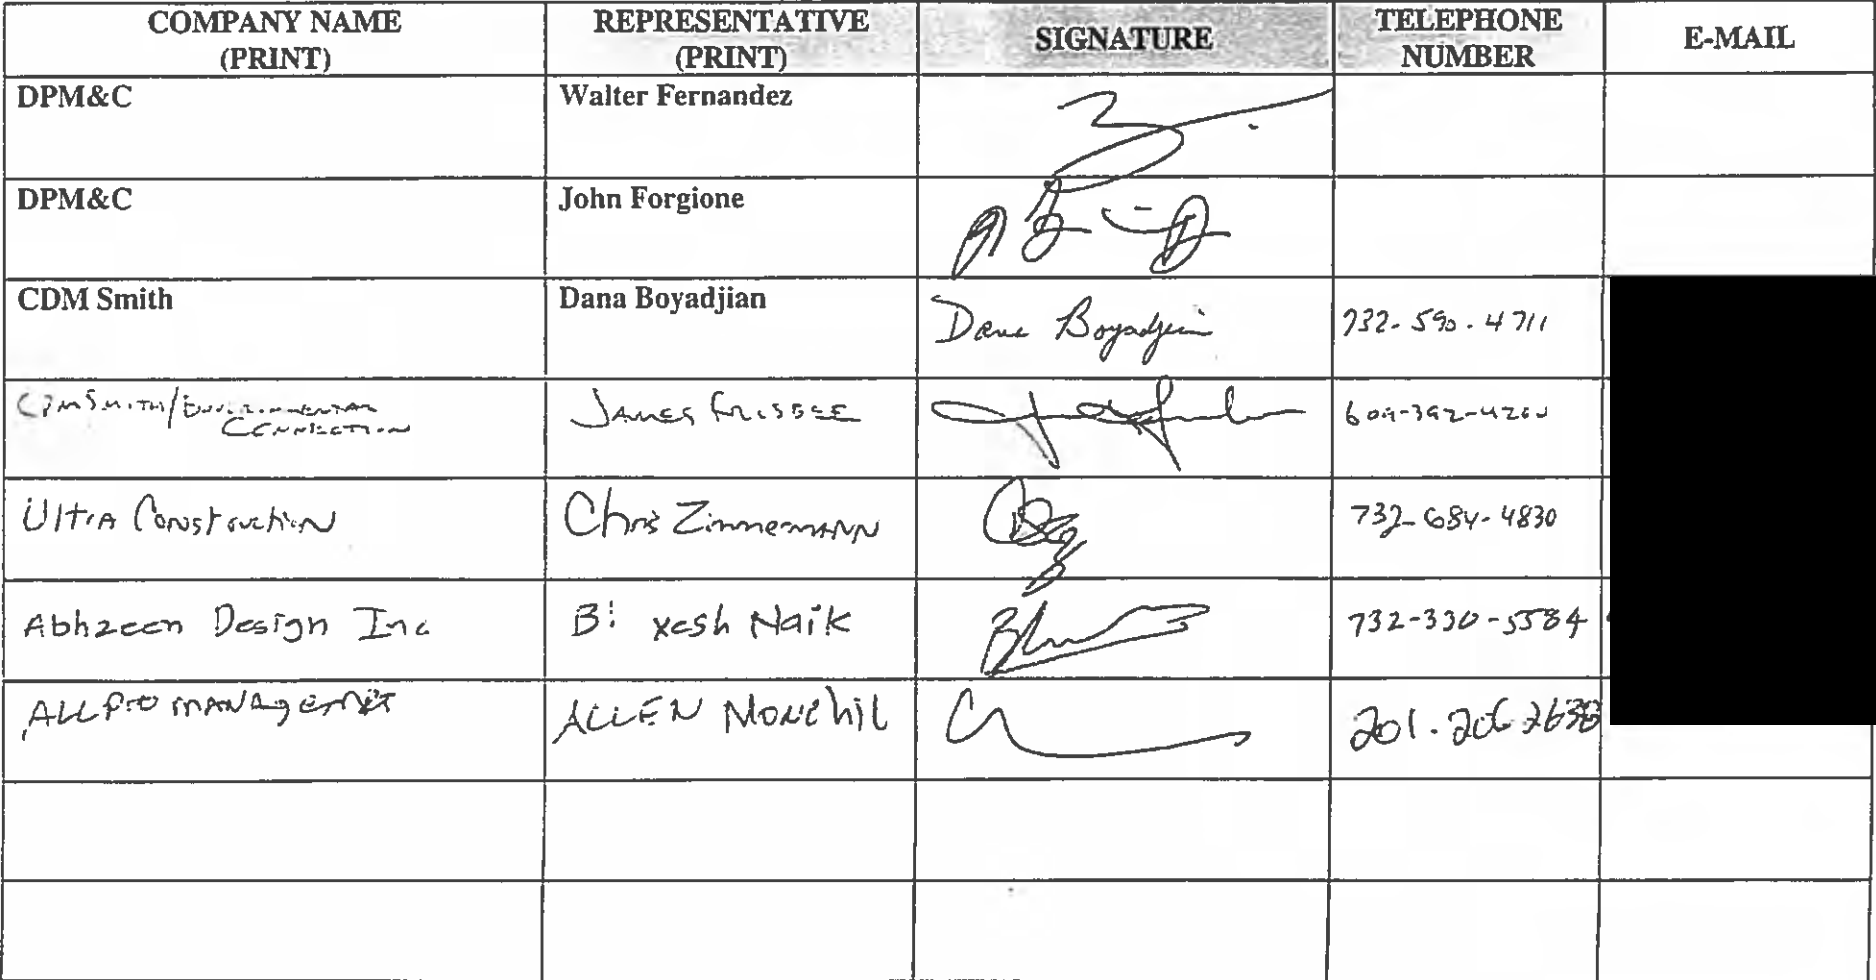 COMPANY NAME
(PRINT)
REPRESENTATIVE
(PRINT)
SIGNATURE
TELEPHONE
NUMBER
E-MAIL
DPM&C
Walter Fernandez
DPM&C
John Forgione
CDM Smith
Dana Boyadjian
Dana Boyadjian
732-590-4711
CDM SMITH/ENVIRONMENTAL
CONNECTION
JAMES FRISBEE
609-392-4200
UltrA Construction
Chris ZimmemANN
732-684-4830
Abhzeen Design Inc
Naik
732-330-5584
ALLPro MANAgemeNt
ALLEN Monchil
201.206 2638